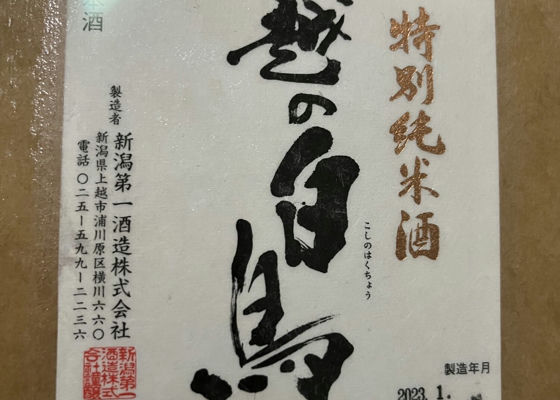 特別純米酒
越の白鳥
こしのはくちょう
製造年月
2023. 1.
本酒
製造者
新潟第一酒造株式会社
新潟県上越市浦川原区横川六六〇
電話 〇二五ー五九九ー二二三六
新潟第一
酒造株式
会社謹醸